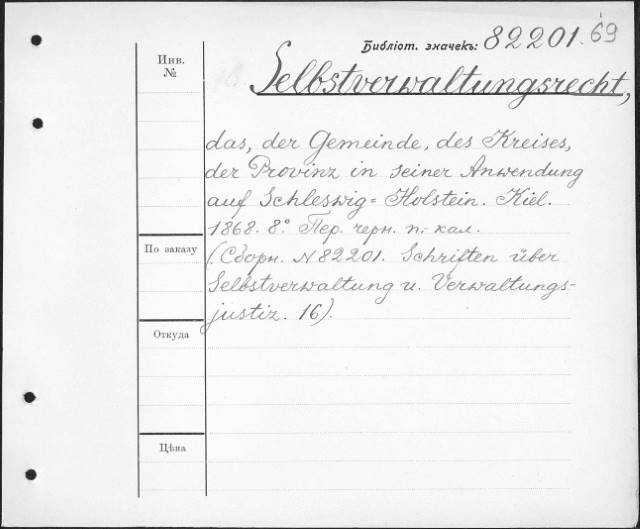 Библіот. значекъ: 82201. 69
Инв.
№
Selbstverwaltungsrecht,
das, der Gemeinde, des Kreises,
der Provinz in seiner Anwendung
auf Schleswig=Holstein. Kiel.
1868. 8° Пер. черн. п. кал.
По заказу
(Сборн. N 82201. Schriften über
Selbstverwaltung u. Verwaltungs-
justiz. 16).
Откуда
Цѣна